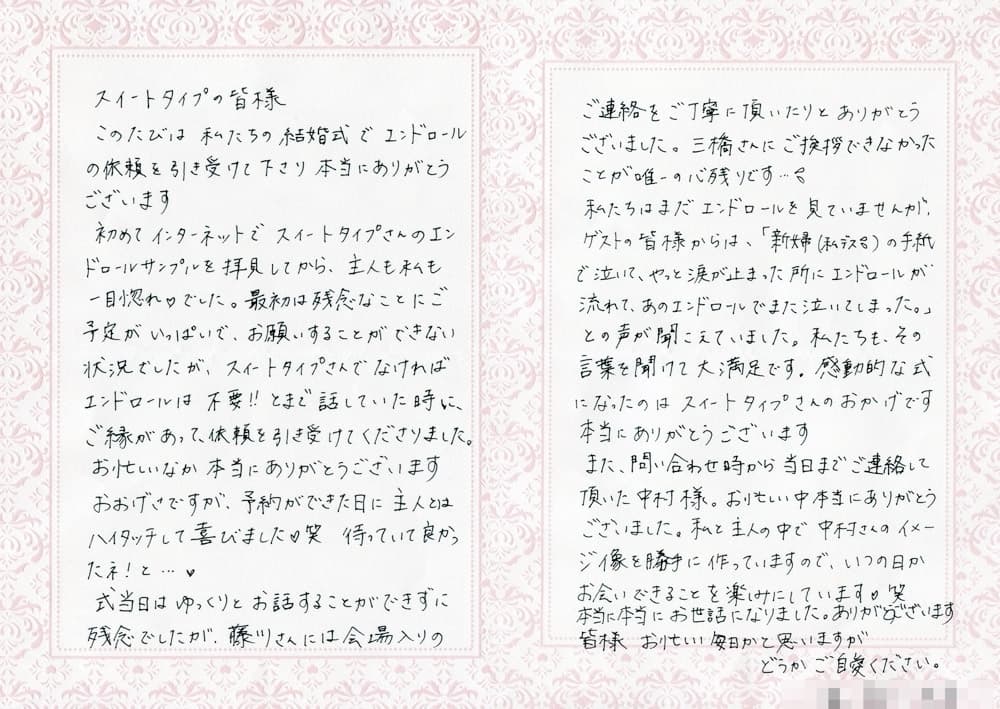 スイートタイプの皆様
このたびは 私たちの結婚式で エンドロール
の依頼を引き受けて下さり 本当にありがとう
ございます
初めてインターネットで スイートタイプさんのエン
ドロールサンプルを拝見してから、主人も私も
一目惚れ♡でした。最初は残念なことにご
予定がいっぱいで、お願いすることができない
状況でしたが、スイートタイプさんでなければ
エンドロールは 不要!! とまで話していた時に、
ご縁があって、依頼を引き受けてくださりました。
お忙しいなか 本当にありがとうございます
おおげさですが、予約ができた日に 主人とは
ハイタッチして喜びました♡笑 待っていて良かっ
たネ!と…♥
式当日は ゆっくりと お話することができずに
残念でしたが、藤川さんには会場入りの
ご連絡をご丁寧に頂いたりと ありがとう
ございました。三橋さんに ご挨拶できなかった
ことが唯一の心残りです…
私たちはまだ エンドロールを見ていませんが、
ゲストの皆様からは、「新婦(私デス)の手紙
で泣いて、やっと涙が止まった所にエンドロールが
流れて、あのエンドロールでまた泣いてしまった。」
との声が聞こえていました。私たちも、その
言葉を聞けて 大満足です。感動的な式
になったのは スイートタイプさんのおかげです
本当にありがとうございます
また、問い合わせ時から 当日まで ご連絡して
頂いた中村様。お忙しい中本当にありがとう
ございました。私と主人の中で 中村さんのイメー
ジ像を勝手に作っていますので、いつの日か
お会いできることを楽しみにしています♡笑
本当に本当に お世話になりました。ありがとうございます
皆様 お忙しい毎日かと思いますが
どうか ご自愛ください。